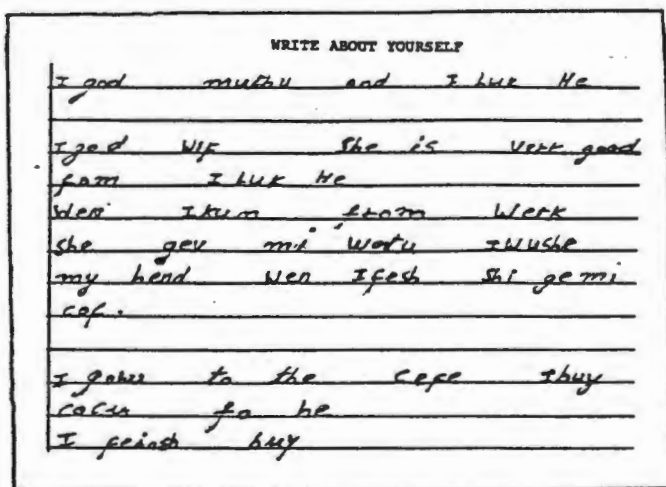 WRITE ABOUT YOURSELF
I good muthu and I luk He
I god wif She is verk good
fam I luk He
Wen I kum from Werk
she gev mi Wotu I wushe
my hend Wen I fesh Shi ge mi
cof.
I gowu to the cefe I buy
cocus fo he
I feinsh buy